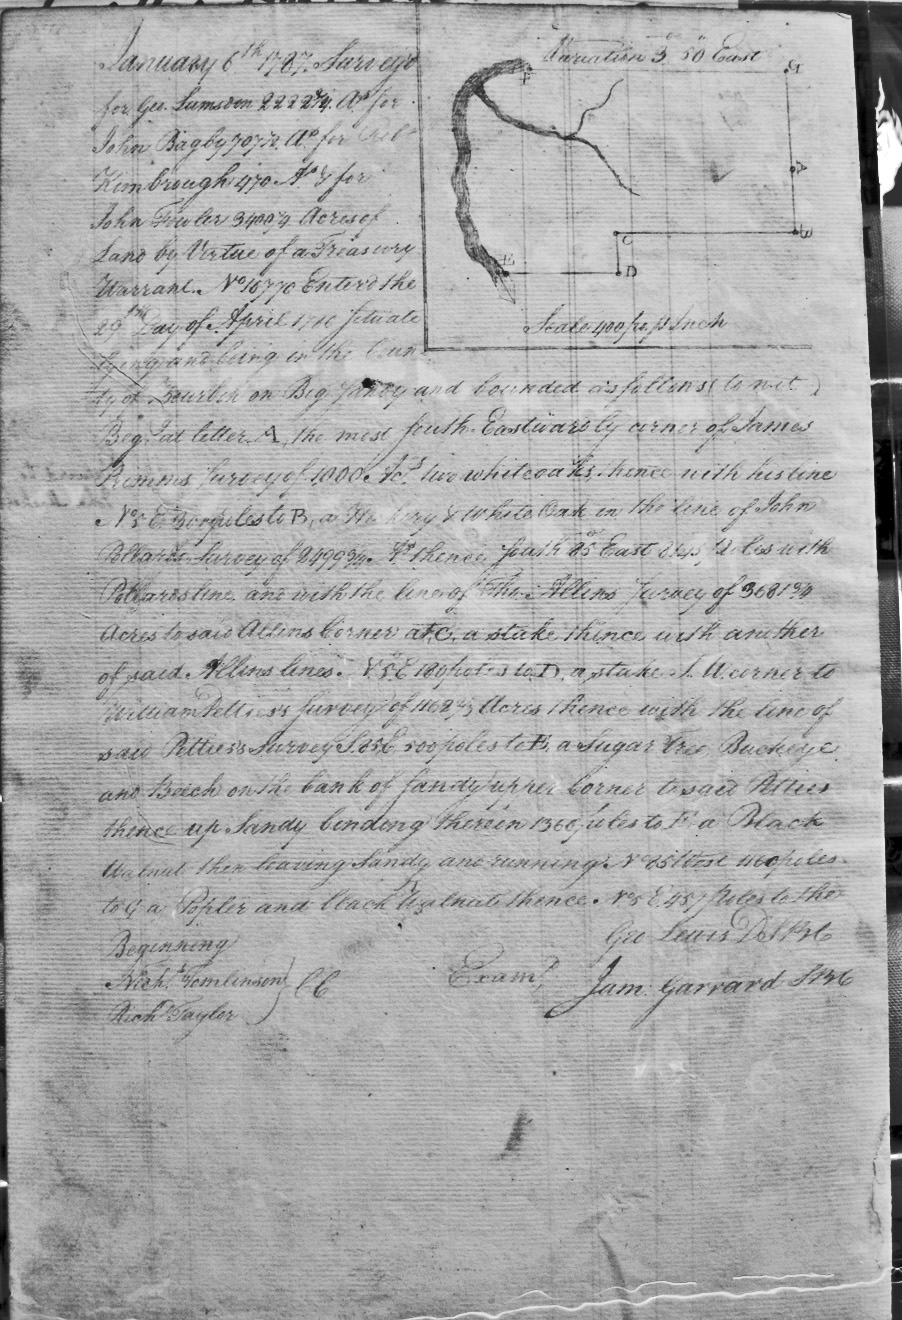 January 6th 1787. Surveyd
for Geo. Lumsden 2222 3/4 As for
John Bagby 707 1/2 As. for Rob
Kimbrough 470 As & for
John Fowler 3400 3/4 Acres of
Land by Virtue of a Treasury
Warrant. No 16770 Enterd the
29th Day of April situate
lying and being in the Coun-
ty of Bourbon on Big Sandy and bounded as follows (to wit)
Beg. at letter A, the most South Eastwardly corner of James
Survey of 1000 Acs two white oaks, thence with his line
No 5 E poles to B, a Hickory & White Oak in the line of John
Pollards Survey of 24993/4 As. thence South 85 East poles with
Pollards line and with the line of Allins Survey of 3681 3/4
Acres to said Allins Corner at C, a stake thence with another
of said Allins lines. S 5 E 180 poles to D, a stake S. W. corner to
William Petties's Survey of Acres thence with the line of
said Petties's Survey S. 85 E 500 poles to E, a Sugar Tree, Buckeye
and Beech on the bank of Sandy upper Corner to said Petties
thence up Sandy binding therein 1360 poles to F a Black
Walnut then leaving Sandy and running No 85 West 1160 poles
to G a Popler and black Walnut thence No 5 E 457 Poles to the
Beginning
Geo Lewis D S B C
Nichs Tomlinson
Richd Taylor
} C C
Examd
Jam: Garrard S B C
Variation 3° 50 East
F
G
A
B
C
D
E
Scale 400 po. pr Inch